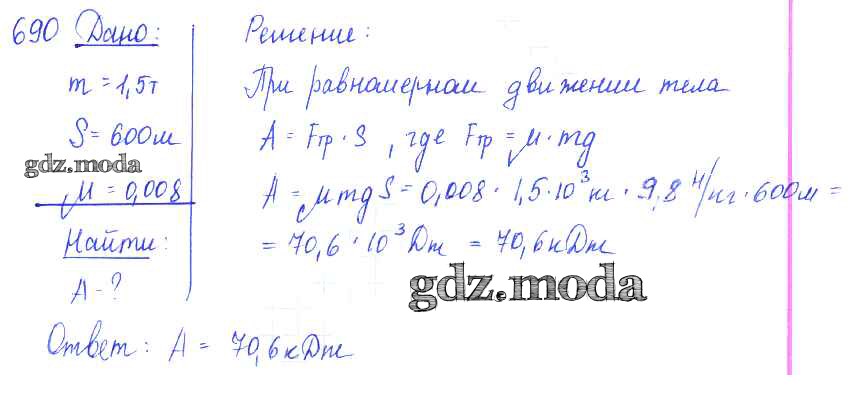 690 Дано:
m = 1,5т
S = 600м
gdz.moda
μ = 0,008
Найти:
A - ?
Решение:
При равномерном движении тела
A = Fтр · S , где Fтр = μ · mg
A = μmg S = 0,008 · 1,5 · 10³ кг · 9,8 Н/кг · 600м =
= 70,6 · 10³ Дж = 70,6 кДж
gdz.moda
Ответ: A = 70,6 кДж